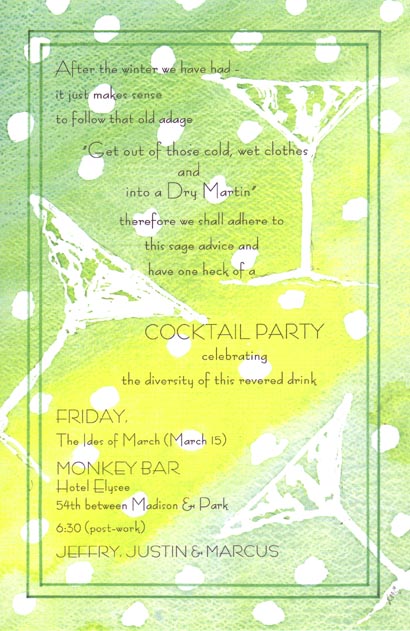 After the winter we have had -
it just makes sense
to follow that old adage
"Get out of those cold, wet clothes
and
into a Dry Martin"
therefore we shall adhere to
this sage advice and
have one heck of a
COCKTAIL PARTY
celebrating
the diversity of this revered drink
FRIDAY,
The Ides of March (March 15)
MONKEY BAR
Hotel Elysee
54th between Madison & Park
6:30 (post-work)
JEFFRY, JUSTIN & MARCUS